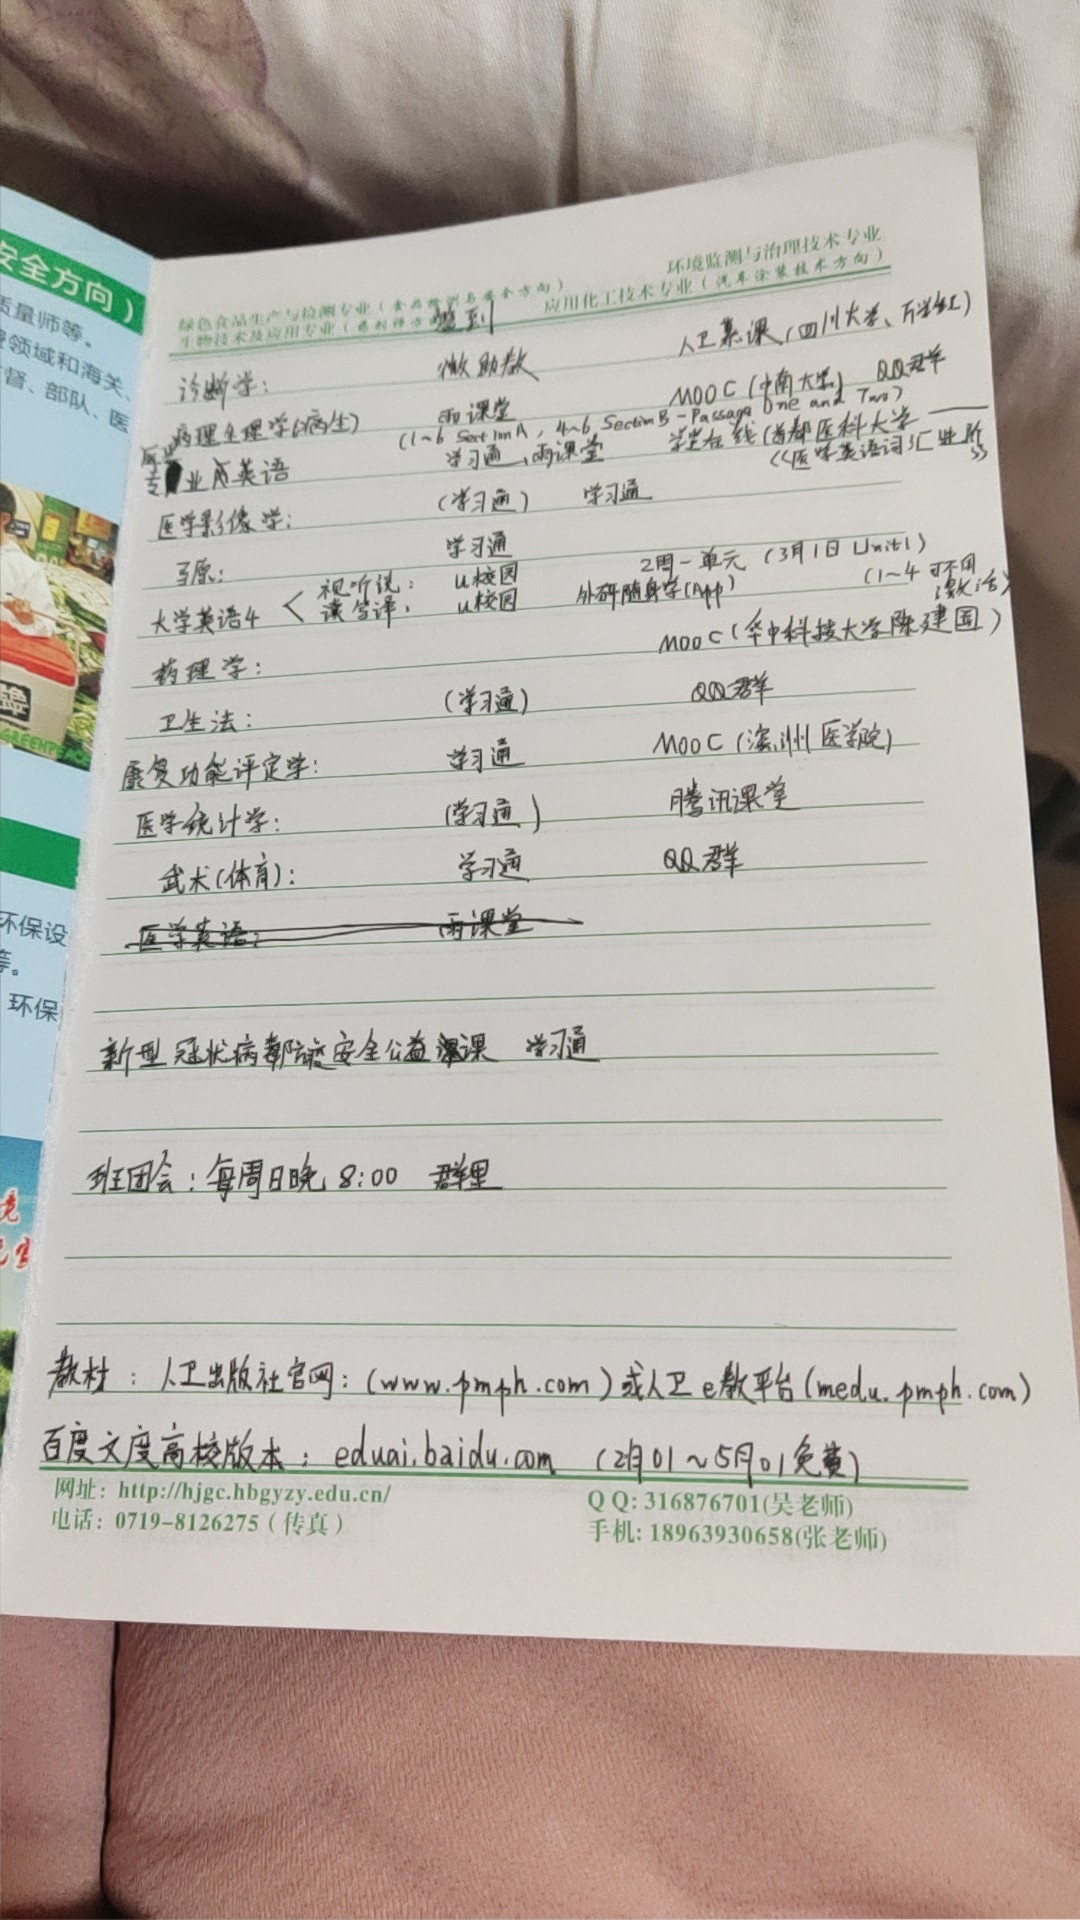 安全方向）
质量师等。
领域和海关、
督、部队、医
GREENPE
环保设
等。
环保
绿色食品生产与检测专业（食品检测与安全方向）
环境监测与治理技术专业
生物技术及应用专业
应用化工技术专业（汽车涂装技术方向）
签到
诊断学： 微助教 人卫慕课(四川大学、万学红)
病理生理学(病生) 雨课堂 MOOC（中南大学） QQ群
(1~6 Section A, 4~6 Section B - Passage One and Two)
医学专业英语 学习通、雨课堂 学堂在线(首都医科大学——
《医学英语词汇进阶》)
医学影像学： (学习通) 学习通
马原： 学习通
大学英语4 < 视听说： U校园 2周一单元（3月1日 Unit1）
读写译： U校园 外研随身学(App) (1~4 可不用激活)
药理学： MOOC(华中科技大学陈建国)
卫生法： (学习通) QQ群
康复功能评定学： 学习通 MOOC（滨州医学院）
医学统计学： (学习通) 腾讯课堂
武术(体育)： 学习通 QQ群
医学英语： 雨课堂
新型冠状病毒防疫安全公益课 学习通
班团会：每周日晚 8:00 群里
教材：人卫出版社官网：(www.pmph.com)或人卫e教平台(medu.pmph.com)
百度文度高校版本：eduai.baidu.com （2月01~5月01免费）
网址：http://hjgc.hbgyzy.edu.cn/
QQ: 316876701(吴老师)
电话：0719-8126275（传真）
手机: 18963930658(张老师)